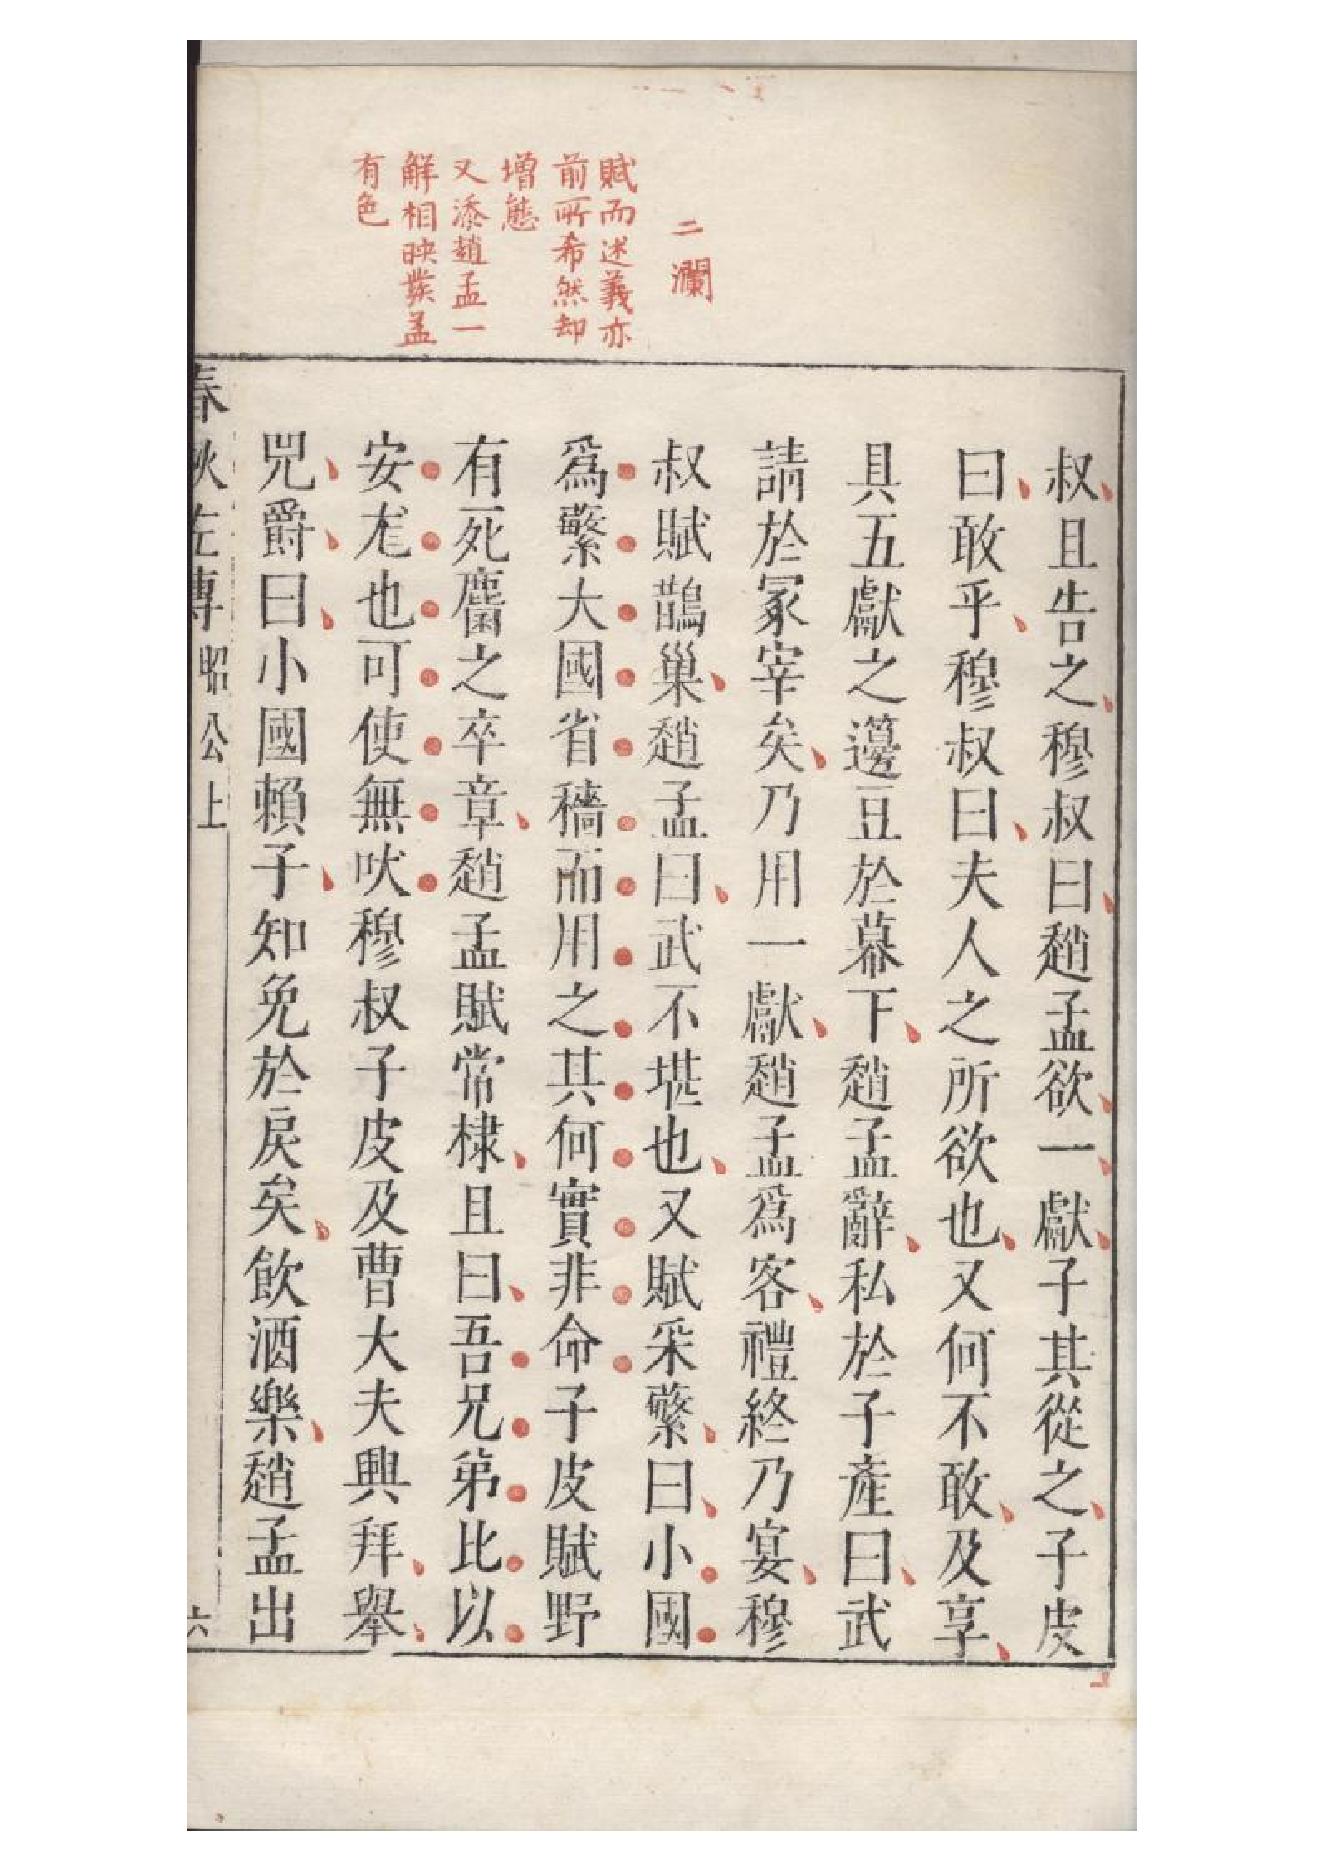 二瀾
賦而述義亦
前所希然却
增態
又添趙孟一
解相映發孟
有色
叔且告之穆叔曰趙孟欲一獻子其從之子皮
曰敢乎穆叔曰夫人之所欲也又何不敢及享
具五獻之籩豆於幕下趙孟辭私於子產曰武
請於冢宰矣乃用一獻趙孟爲客禮終乃宴穆
叔賦鵲巢趙孟曰武不堪也又賦采蘩曰小國
爲蘩大國省穡而用之其何實非命子皮賦野
有死麕之卒章趙孟賦常棣且曰吾兄弟比以
安尨也可使無吠穆叔子皮及曹大夫興拜舉
兕爵曰小國賴子知免於戾矣飲酒樂趙孟出
春秋左傳 昭公上 六